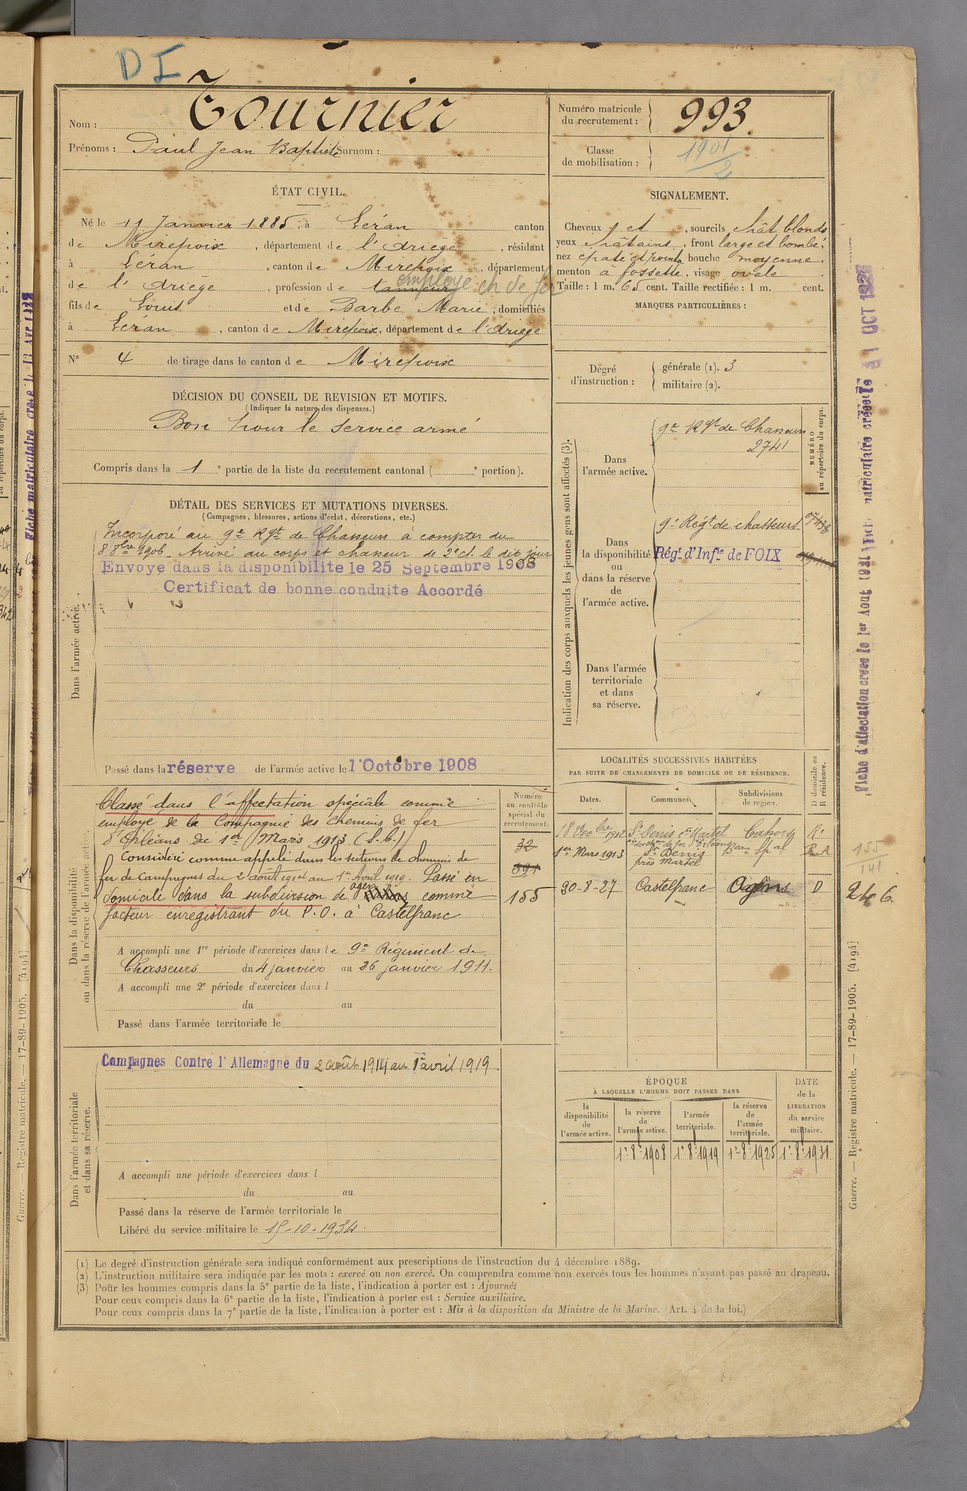 DI
Nom : Tournier
Prénoms : Paul Jean Baptiste Surnom :
Numéro matricule du recrutement : 993.
Classe de mobilisation : 1901/2
ÉTAT CIVIL.
Né le 11 Janvier 1885, à Léran canton
de Mirepoix, département de l'Ariège, résidant
à Léran, canton de Mirepoix, département
de l'Ariège, profession de tanneur employé ch de fer
fils de Louis et de Barbe Marie, domiciliés
à Léran, canton de Mirepoix, département de l'Ariège
N° 4 de tirage dans le canton de Mirepoix
SIGNALEMENT.
Cheveux et, sourcils chât. blonds
yeux châtains, front large et bombé,
nez épaté et pointu bouche moyenne
menton à fossette, visage ovale
Taille : 1 m. 65 cent. Taille rectifiée : 1 m. cent.
MARQUES PARTICULIÈRES :
Degré d'instruction :
générale (1). 3
militaire (2).
DÉCISION DU CONSEIL DE REVISION ET MOTIFS.
(Indiquer la nature des dispenses.)
Bon pour le service armé
Compris dans la 1e partie de la liste du recrutement cantonal ( e portion).
DÉTAIL DES SERVICES ET MUTATIONS DIVERSES.
(Campagnes, blessures, actions d'éclat, décorations, etc.)
Dans l'armée active.
Incorporé au 9e Rgt de Chasseurs à compter du
8 8bre 1906. Arrivé au corps et chasseur de 2e cl. le dit jour
Envoyé dans la disponibilité le 25 Septembre 1908
Certificat de bonne conduite Accordé
Passé dans la réserve de l'armée active le 1er Octobre 1908
Indication des corps auxquels les jeunes gens sont affectés (3).
NUMÉRO au répertoire du corps.
Dans l'armée active.
9e Rgt de Chasseurs
2741
Dans la disponibilité ou dans la réserve de l'armée active.
9e Régt de chasseurs
Régt d'Infie de FOIX
Dans l'armée territoriale et dans sa réserve.
Dans la disponibilité ou dans la réserve de l'armée active.
Classé dans l'affectation spéciale comme
employé de la Compagnie des Chemins de fer
d'Orléans du 1er Mars 1913 (S.C.)
Considéré comme appelé dans les sections de chemins de
fer de Campagnes du 2 août 1914 au 1er Avril 1919. Passé en
domicile dans la subdivision de Agen comme
facteur enregistrant du P.O. à Castelfranc
A accompli une 1re période d'exercices dans le 9e Régiment de
Chasseurs du 4 janvier au 26 janvier 1911.
A accompli une 2e période d'exercices dans l
du au
Passé dans l'armée territoriale le
Numéro au contrôle spécial du recrutement.
32
391
155
LOCALITÉS SUCCESSIVES HABITÉES
PAR SUITE DE CHANGEMENTS DE DOMICILE OU DE RÉSIDENCE.
Dates. Communes. Subdivisions de région. D domicile ou R résidence.
18 Décbre 1912 St Denis ct Martel Cahors R.
1er Mars 1913 St Denis près Martel
30-8-27 Castelfranc Agen D
155
141
Dans l'armée territoriale et dans sa réserve.
Campagnes Contre l'Allemagne du 2 août 1914 au 1er avril 1919
A accompli une période d'exercices dans l
du au
Passé dans la réserve de l'armée territoriale le
Libéré du service militaire le 15-10-1934
ÉPOQUE
À LAQUELLE L'HOMME DOIT PASSER DANS
DATE de la LIBÉRATION du service militaire.
la disponibilité de l'armée active.
la réserve de l'armée active.
l'armée territoriale.
la réserve de l'armée territoriale.
1-8-1908 1-8-1919 1-8-1925 1-8-1931
(1) Le degré d'instruction générale sera indiqué conformément aux prescriptions de l'instruction du 4 décembre 1889.
(2) L'instruction militaire sera indiquée par les mots : exercé ou non exercé. On comprendra comme non exercés tous les hommes n'ayant pas passé au drapeau.
(3) Pour les hommes compris dans la 5e partie de la liste, l'indication à porter est : Ajourné
Pour ceux compris dans la 6e partie de la liste, l'indication à porter est : Service auxiliaire.
Pour ceux compris dans la 7e partie de la liste, l'indication à porter est : Mis à la disposition du Ministre de la Marine. (Art. 4 de la loi.)
Guerre. — Registre matricule. — 17-89-1905. [4194]
Guerre. — Registre matricule. — 17-89-1905. [4194]